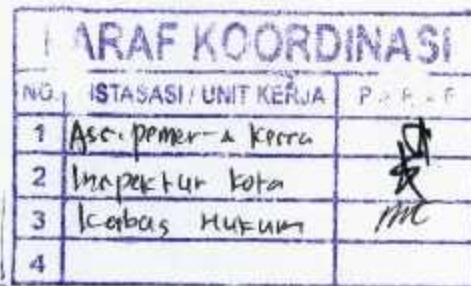 PARAF KOORDINASI
NO. ISTASASI / UNIT KERJA PARAF
1 Ass. pemer-a Kerra
2 Inspektur Kota
3 Kabag Hukum
4